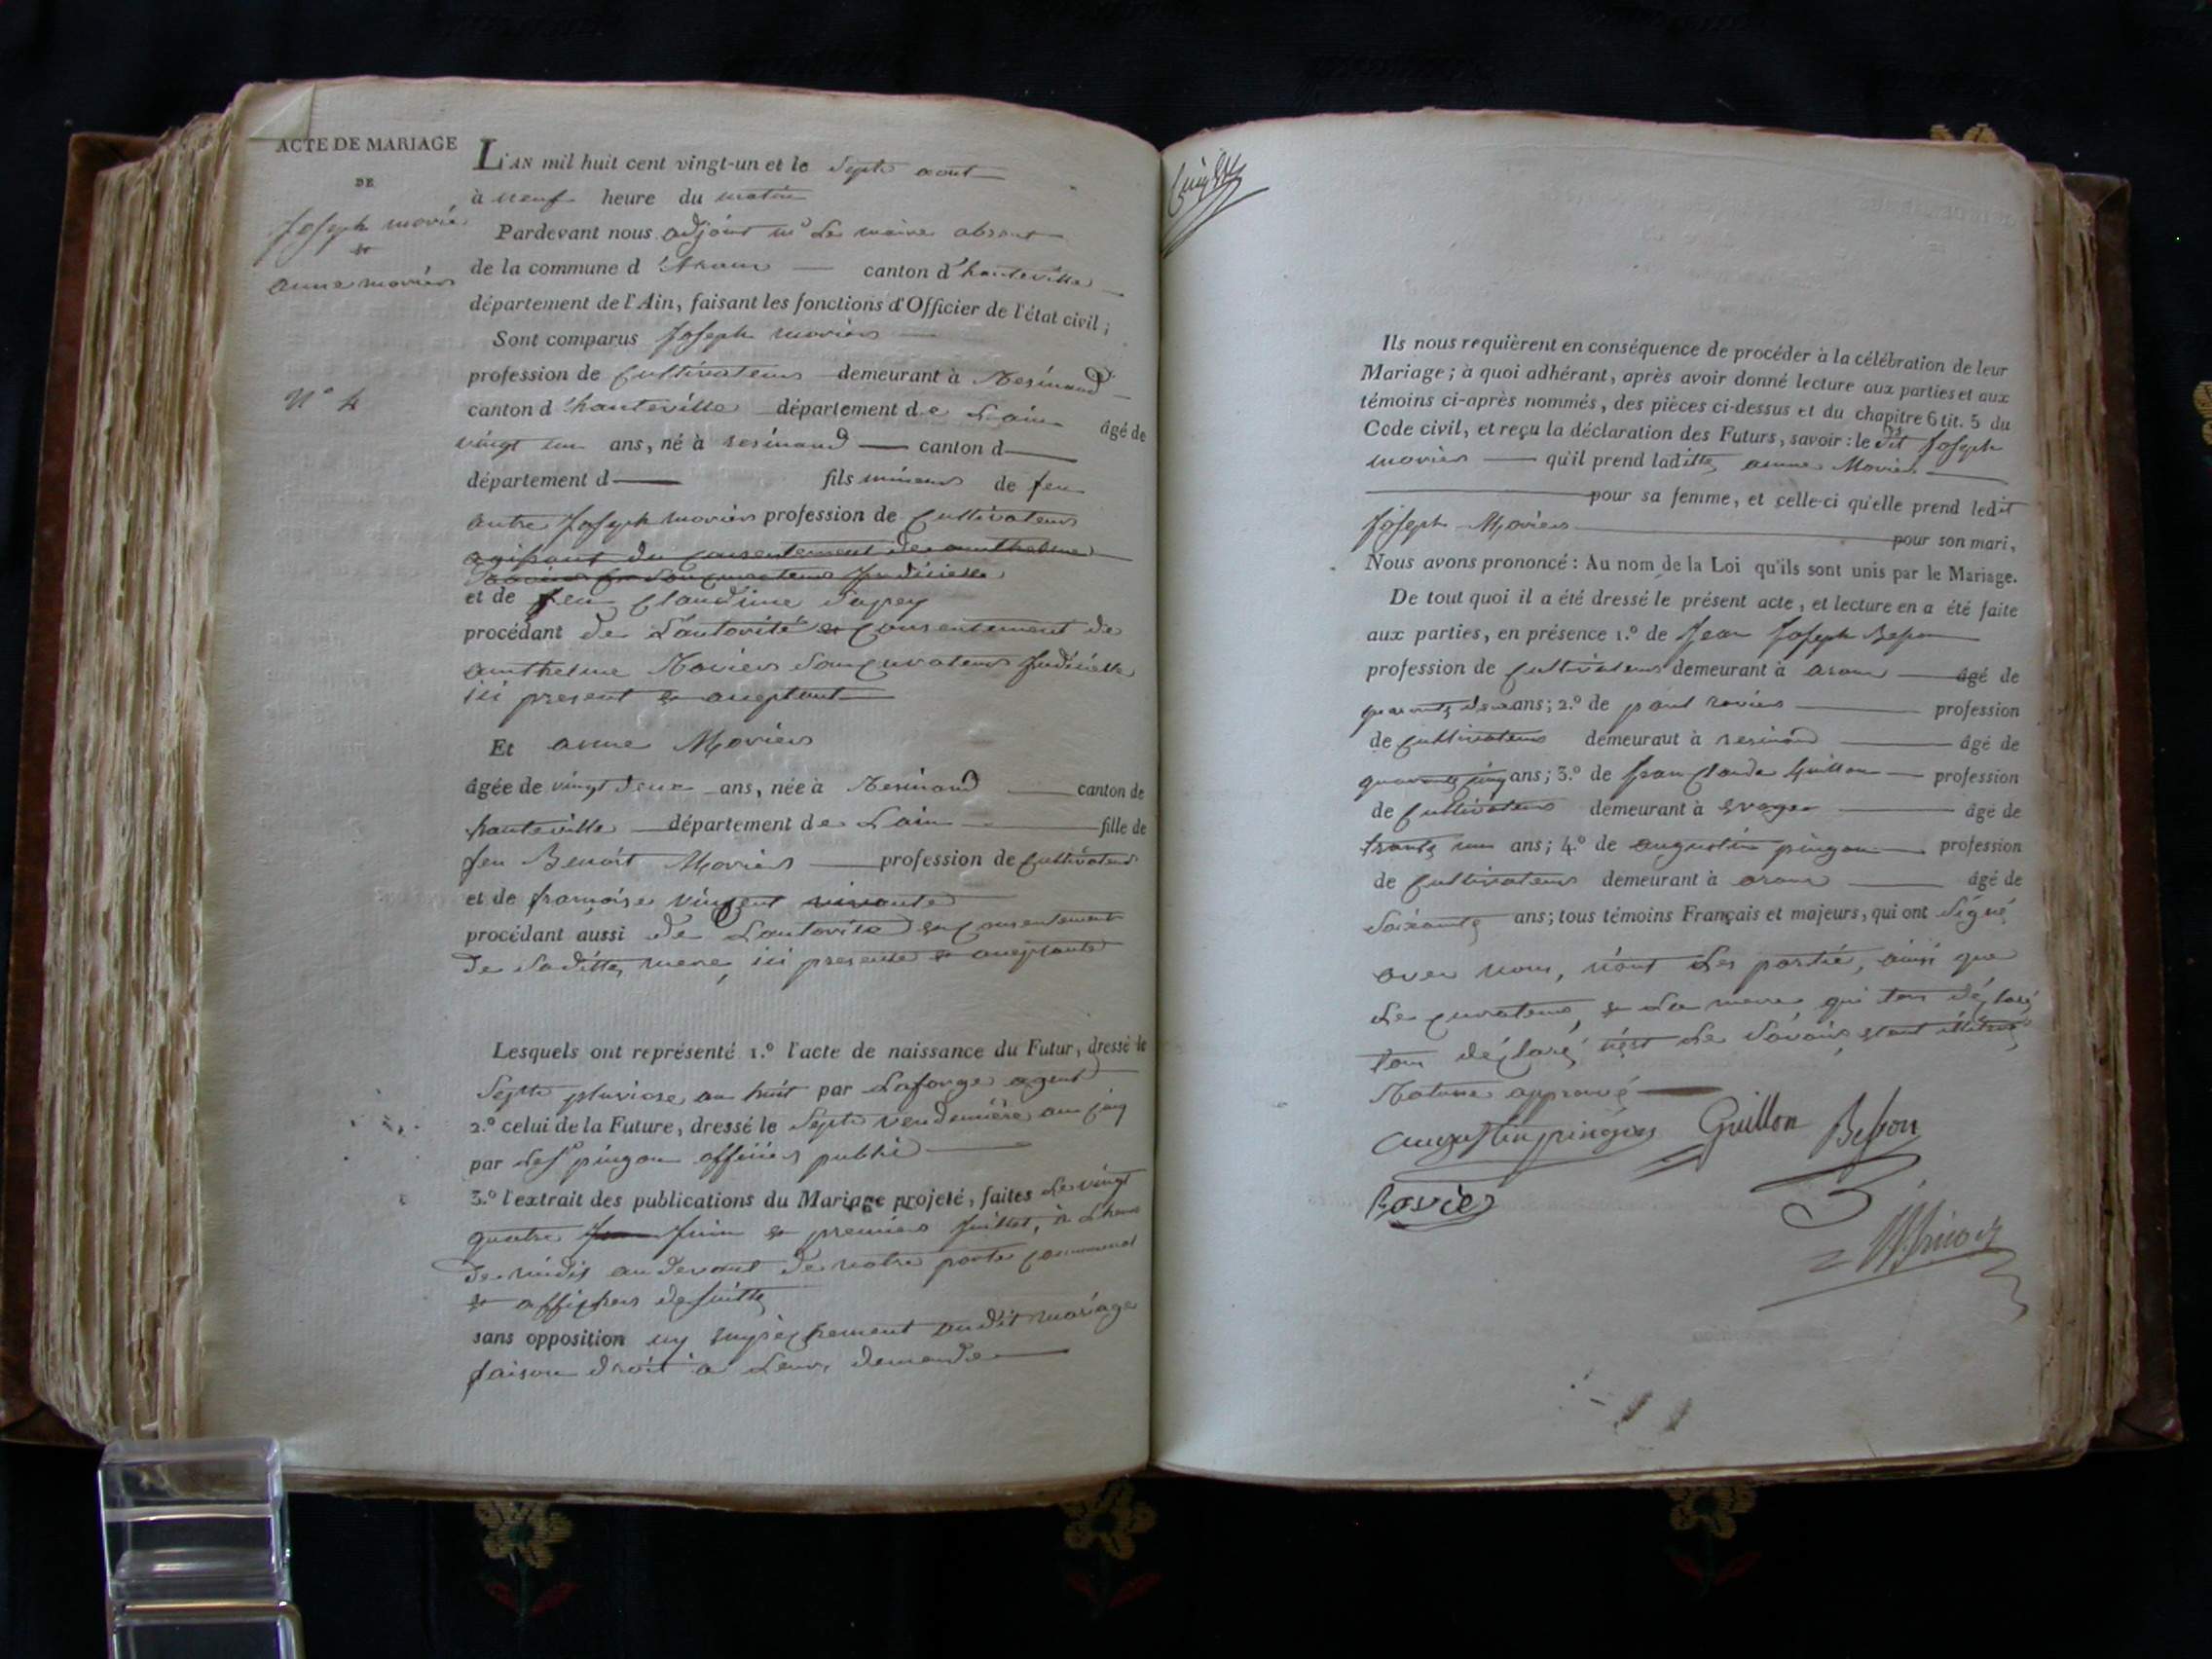 ACTE DE MARIAGE
DE
Joseph movié
et
anne moviér
N° 4
L'AN mil huit cent vingt-un et le Septe aout
à neuf heure du matin
Pardevant nous adjoint mr Le maire absent
de la commune d'Aranc canton d'hauteville
département de l'Ain, faisant les fonctions d'Officier de l'état civil;
Sont comparus Joseph moviér
profession de Cultivateur demeurant à Resinand
canton d'hauteville département de Lain âgé de
vingt un ans, né à resinand canton d
département d fils mineur de feu
autre Joseph moviér profession de Cultivateur
agissant du Consentement de anthelme
Roviér son curateur Judicielle
et de feu Claudine
procédant de Lautorité et Consentement de
anthelme Roviér son curateur Judicielle
ici present et aceptant
Et anne Moviér
âgée de vingt deux ans, née à Resinand canton de
hauteville département de Lain fille de
feu Benoit Moviér profession de Cultivateur
et de francoise vincent vivante
procédant aussi de Lautorité et Consentement
de Saditte mere, ici presente et aceptante
Lesquels ont représenté 1.º l'acte de naissance du Futur, dressé le
Septe pluviose an huit par Laforge agent
2.º celui de la Future, dressé le Septe vendemiere an cinq
par pingon officier public
3.º l'extrait des publications du Mariage projeté, faites Le vingt
quatre Juin et premier Juillet, à Lheure
de midis au devant de notre porte Communal
et afficher desuitte
sans opposition ny empechement audit mariage
faison droit a Leur demande
Ils nous requièrent en conséquence de procéder à la célébration de leur
Mariage; à quoi adhérant, après avoir donné lecture aux parties et aux
témoins ci-après nommés, des pièces ci-dessus et du chapitre 6 tit. 5 du
Code civil, et reçu la déclaration des Futurs, savoir: le dit Joseph
moviér qu'il prend laditte anne Moviér
pour sa femme, et celle-ci qu'elle prend ledit
Joseph Moviér pour son mari,
Nous avons prononcé: Au nom de la Loi qu'ils sont unis par le Mariage.
De tout quoi il a été dressé le présent acte, et lecture en a été faite
aux parties, en présence 1.º de Jean Joseph Besson
profession de Cultivateur demeurant à aranc âgé de
quarante deux ans; 2.º de paul roviér profession
de Cultivateur demeurant à resinand âgé de
quarante cinq ans; 3.º de Jean Claude Guillon profession
de Cultivateur demeurant à Evoges âgé de
trente un ans; 4.º de augustin pingon profession
de Cultivateur demeurant à aranc âgé de
Soixante ans; tous témoins Français et majeurs, qui ont Signé
avec nous, non Les partie, ainsi que
Le Curateur, et La mere qui
déclaré Le Savoir
Rature approuvé
augustin pingon Guillon Besson
Rovier